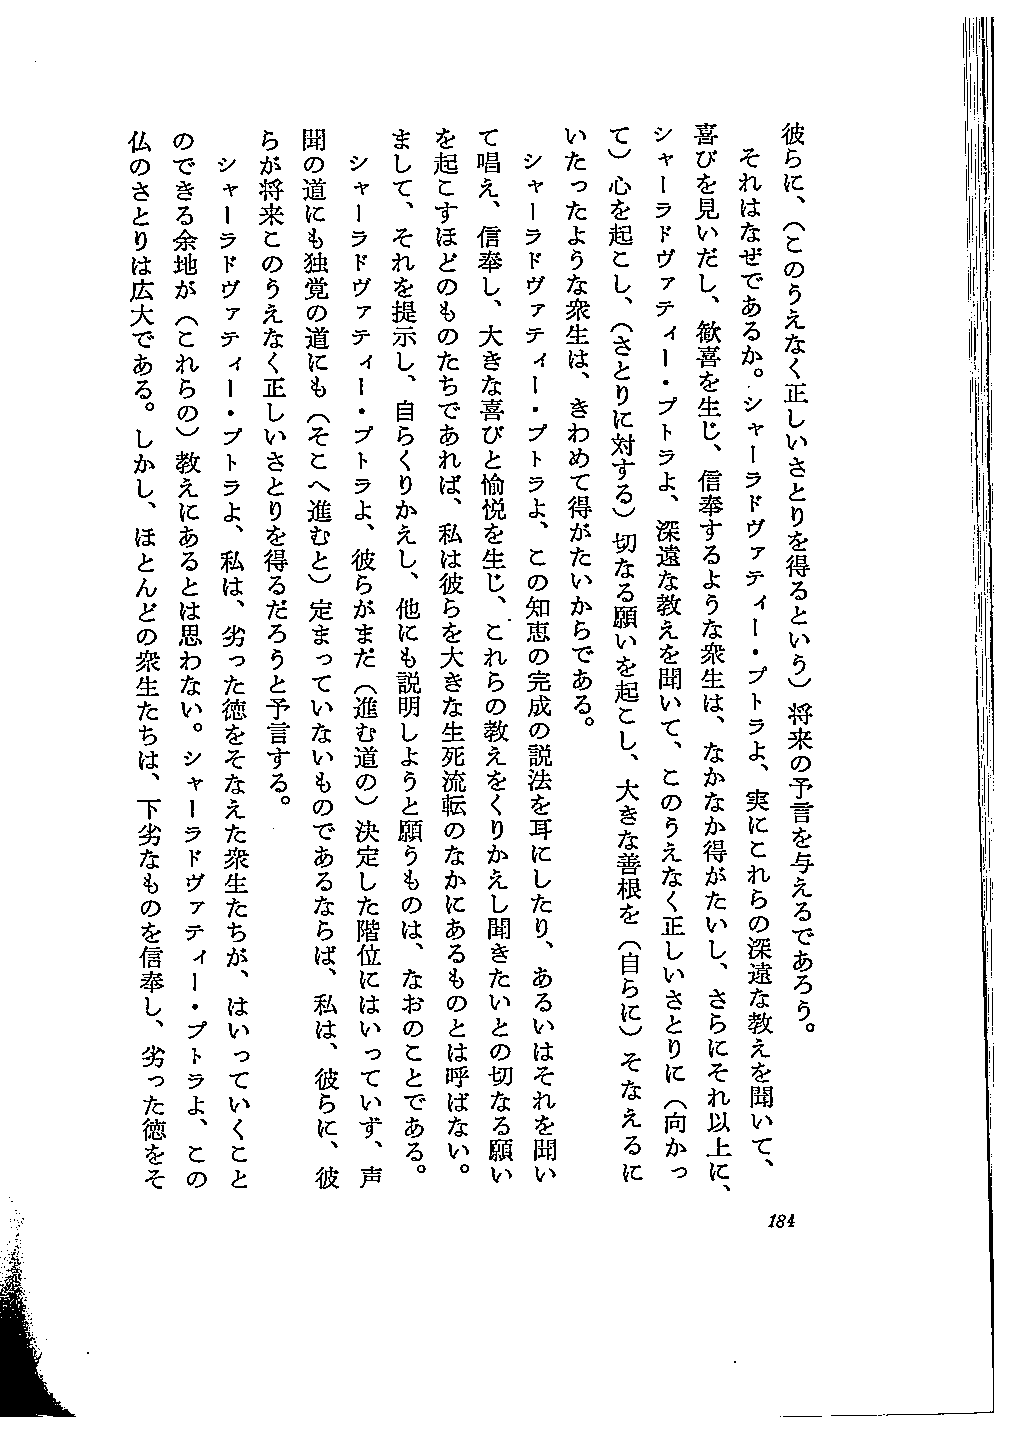 彼らに、（このうえなく正しいさとりを得るという）将来の予言を与えるであろう。
それはなぜであるか。シャーラドヴァティー・プトラよ、実にこれらの深遠な教えを聞いて、
喜びを見いだし、歓喜を生じ、信奉するような衆生は、なかなか得がたいし、さらにそれ以上に、
シャーラドヴァティー・プトラよ、深遠な教えを聞いて、このうえなく正しいさとりに（向かっ
て）心を起こし、（さとりに対する）切なる願いを起こし、大きな善根を（自らに）そなえるに
いたったような衆生は、きわめて得がたいからである。
シャーラドヴァティー・プトラよ、この知恵の完成の説法を耳にしたり、あるいはそれを聞い
て唱え、信奉し、大きな喜びと愉悦を生じ、これらの教えをくりかえし聞きたいとの切なる願い
を起こすほどのものたちであれば、私は彼らを大きな生死流転のなかにあるものとは呼ばない。
まして、それを提示し、自らくりかえし、他にも説明しようと願うものは、なおのことである。
シャーラドヴァティー・プトラよ、彼らがまだ（進む道の）決定した階位にはいっていず、声
聞の道にも独覚の道にも（そこへ進むと）定まっていないものであるならば、私は、彼らに、彼
らが将来このうえなく正しいさとりを得るだろうと予言する。
シャーラドヴァティー・プトラよ、私は、劣った徳をそなえた衆生たちが、はいっていくこと
のできる余地が（これらの）教えにあるとは思わない。シャーラドヴァティー・プトラよ、この
仏のさとりは広大である。しかし、ほとんどの衆生たちは、下劣なものを信奉し、劣った徳をそ
184